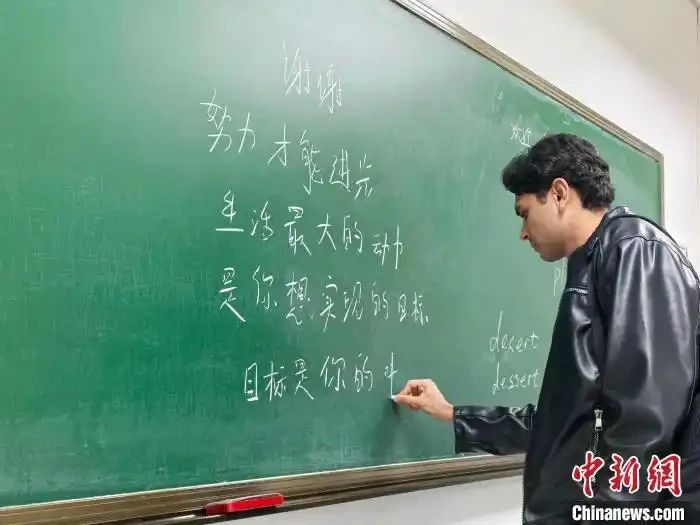 谢谢
努力才能进步
生活最大的动力
是你想实现的目标
目标是你的
desert
dessert
中新网
Chinanews.com